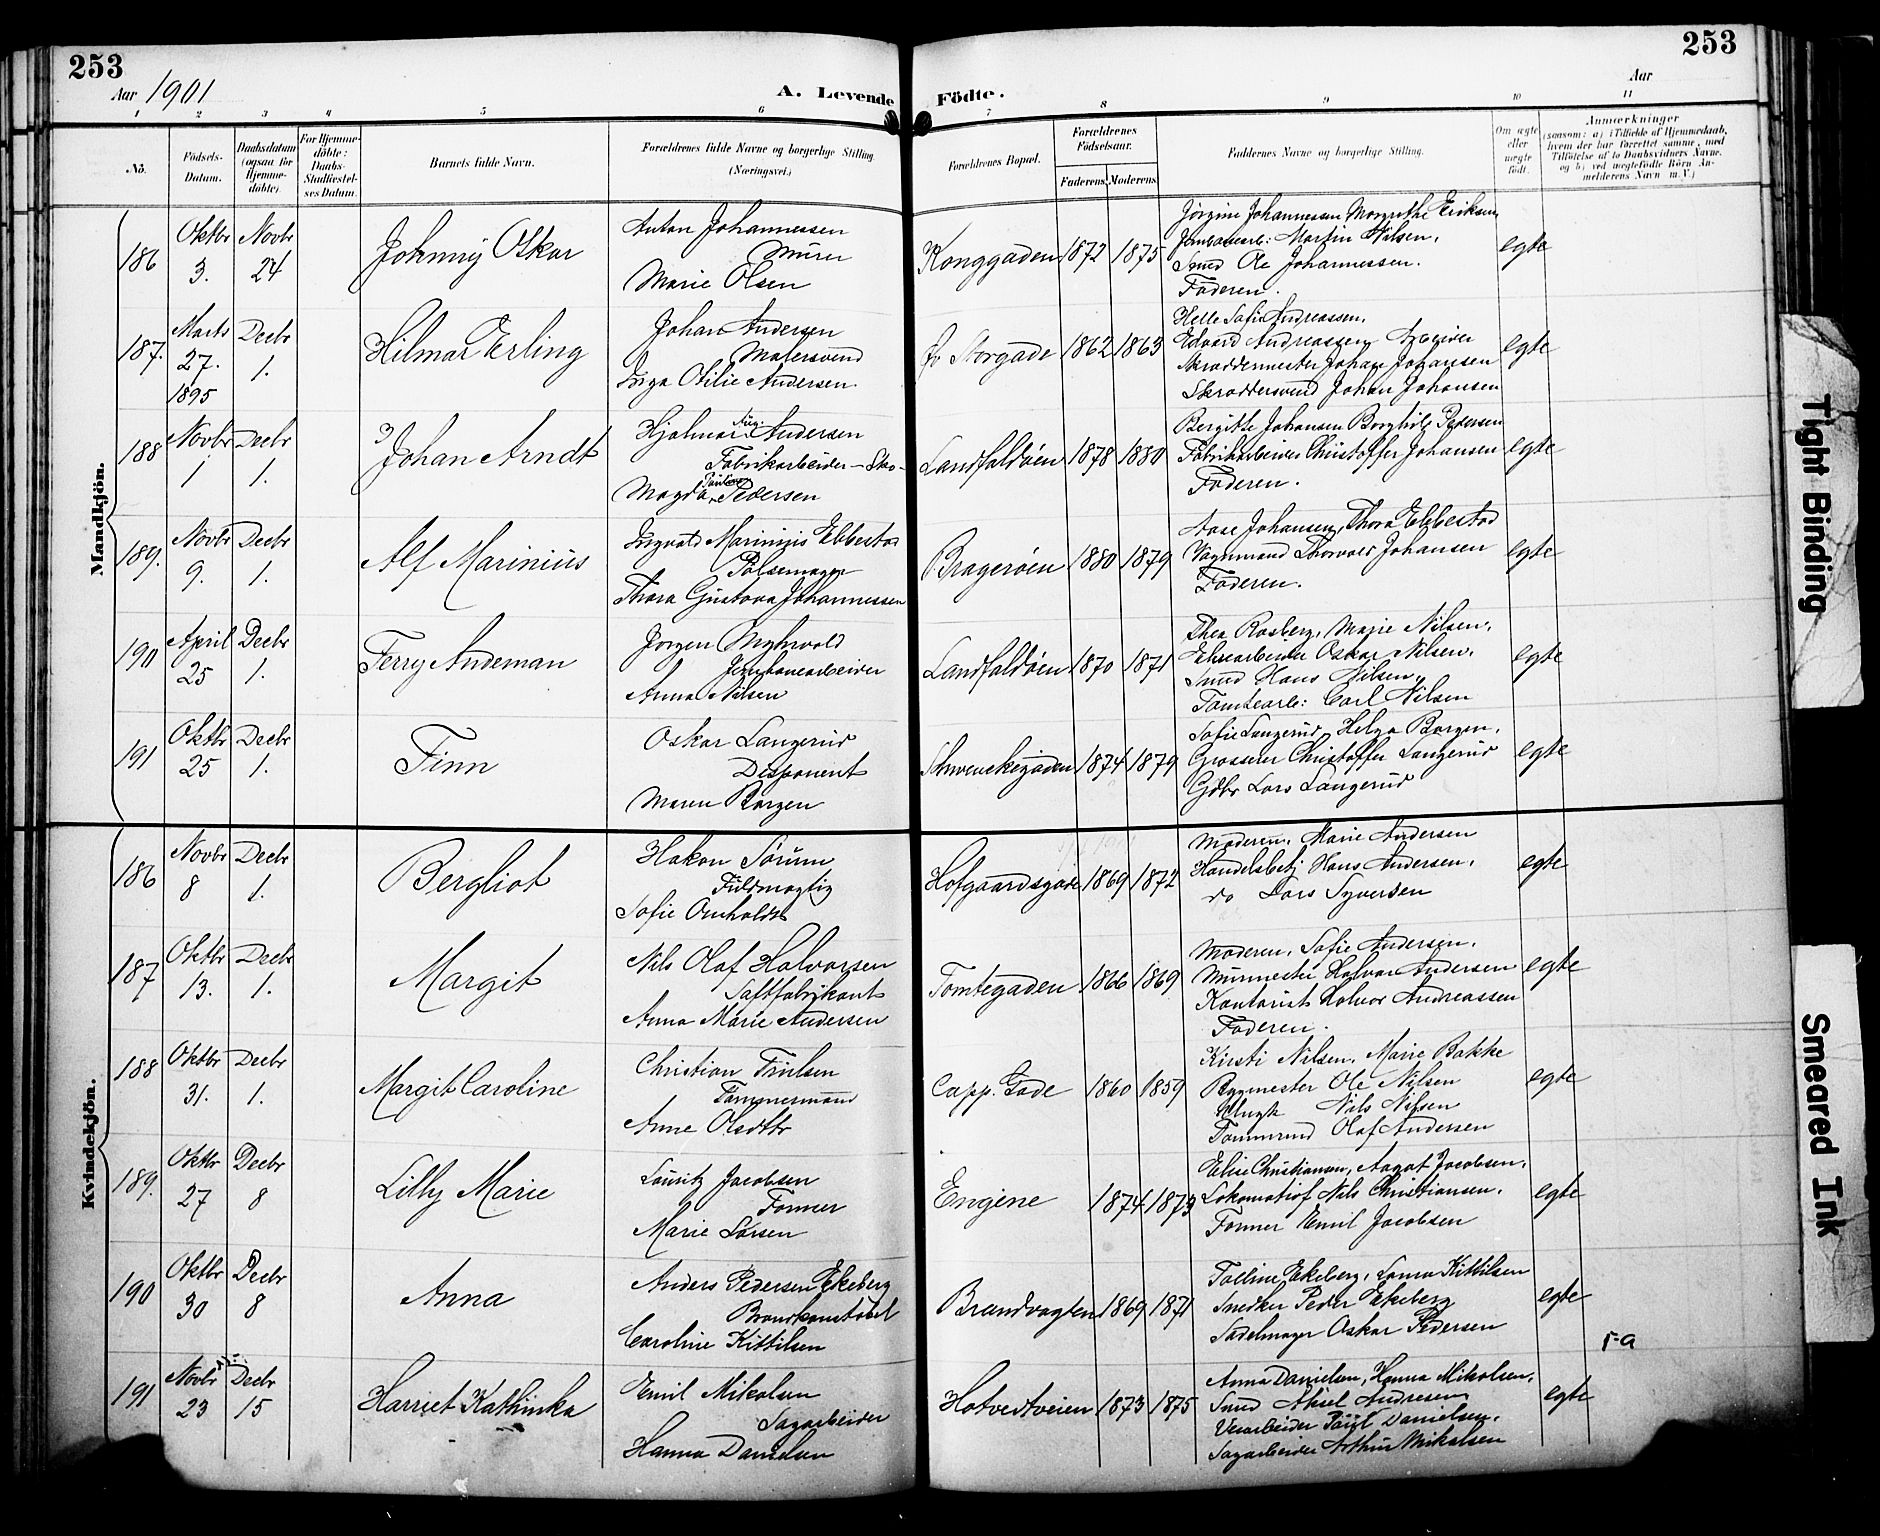 253
Aar 1901
A. Levende Födte.
253
Aar
1 2 3 4 5 6 7 8 9 10 11
No.
Födsels-Datum.
Daabsdatum (ogsaa for Hjemmedöbte).
For Hjemmedöbte: Daabs-Stadfæstelses Datum.
Barnets fulde Navn.
Forældrenes fulde Navne og borgerlige Stilling (Næringsvei.)
Forældrenes Bopæl.
Forældrenes Födselsaar.
Faderens. Moderens.
Faddernes Navne og borgerlige Stilling.
Om ægte eller uægte födt.
Anmærkninger
(saasom: a) i Tilfælde af Hjemmedaab, hvem der har forrettet samme, med Tilföielse af to Daabsvidners Navne, og b) ved uægtefödte Börn Anmelderens Navn m. V.)
Mandkjön.
186 Oktbr 3. Novbr 24 Johnny Oskar
Anton Johannessen
Murer
Marie Olsen
Konggaden 1872 1875
Jörgine Johannessen Margrethe Eriksen
Jernbanearb: Martin Nilsen.
Smed Ole Johannessen.
Faderen.
egte
187. Marts 27. 1895 Decbr 1. Hilmar Erling
Johan Andersen
Malersvend
Inga Otilie Andersen
Öv Storgade 1862 1863
Helle Sofie Andreassen.
Edvard Andreassen
Skræddermester Johan Johansen
Skræddersvend Johan Johansen
egte
188 Novbr 1 Decbr 1. Johan Arndt
Hjalmar Aug. Andersen
Fabrikarbeider - Sko-
Magda Pauline Pedersen
Landfaldöen 1878 1880
Bergitte Johansen Borghild Pedersen
Fabrikarbeider Christoffer Johansen
Faderen.
egte
189. Novbr 9. Decbr 1. Alf Marinius
Ingvald Marinius Ebbestad
Pölsemager
Thora Gustava Johannessen
Bragerøen 1880 1879
Aase Johansen, Thora Ebbestad
Vognmand Thorvald Johansen
Faderen.
egte
190 April 25 Decbr 1. Ferry Andeman
Jørgen Myhrvold
Jernbanearbeider
Anna Nilsen
Landfaldöen 1870 1871
Thea Rosberg, Marie Nilsen,
Oskar Nilsen.
Smed Hans Nilsen.
Tomtearb: Carl Nilsen
egte
191 Oktbr 25 Decbr 1. Finn
Oskar Langerud
Disponent
Maren Borgen
Schwenckegaden 1874 1879
Sofie Langerud, Helga Borgen,
Grosserer Christoffer Langerud
Gdbr Lars Langerud
egte
Kvindekjön.
186 Novbr 8 Decbr 1. Bergliot
Hakon Sörum
Fuldmægtig
Sofie Arnholdt
Hofgaardsgade 1869 1872
Moderen, Marie Andersen
Handelsbetj Hans Andersen.
do Lars Syversen
egte
187 Oktbr 13. Decbr 1. Margit
Nils Olaf Halvorsen
Saftfabrikant
Anna Marie Andersen
Tomtegaden 1866 1869
Moderen, Sofie Andersen.
Murmester Halvor Andersen
Kontorist Halvor Andreassen
Faderen.
egte
188 Oktbr 31. Decbr 1. Margit Caroline
Christian Truelsen
Tømmermand
Anne Olsdtr
Capp. Gade 1860 1859
Kirsti Nilsen, Marie Bakke
Bygmester Ole Nilsen
Ungk Nils Nilsen
Tømmermd Olaf Andersen
egte
189. Oktbr 27 Decbr 8 Lilly Marie
Lauritz Jacobsen
Former
Marie Larsen
Engene 1874 1873
Elise Christiansen, Aagot Jacobsen.
Lokomotivf Nils Christiansen.
Former Emil Jacobsen
egte
190 Oktbr 30 Decbr 8 Anna
Anders Pedersen Ekeberg
Brandkonstabel
Caroline Kittilsen
Brandvagten 1869 1871
Talline Ekeberg, Laura Kittilsen
Snedker Peder Ekeberg
Sadelmager Oskar Pedersen
egte
191 Novbr 23 Decbr 15 Harriet Kathinka
Emil Mikalsen
Sagarbeider
Hanna Danielsen
Hotvedtveien 1873 1875
Anna Danielsen, Hanna Mikalsen,
Smed Aksel Andresen
Paul Danielsen.
Sagarbeider Arthur Mikalsen
egte
Tight Binding
Smeared Ink